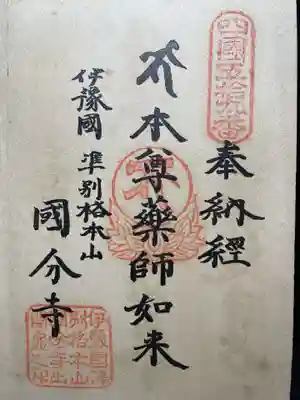 四國五拾九番
奉納經
本尊藥師如来
伊豫國 準別格本山
國分寺